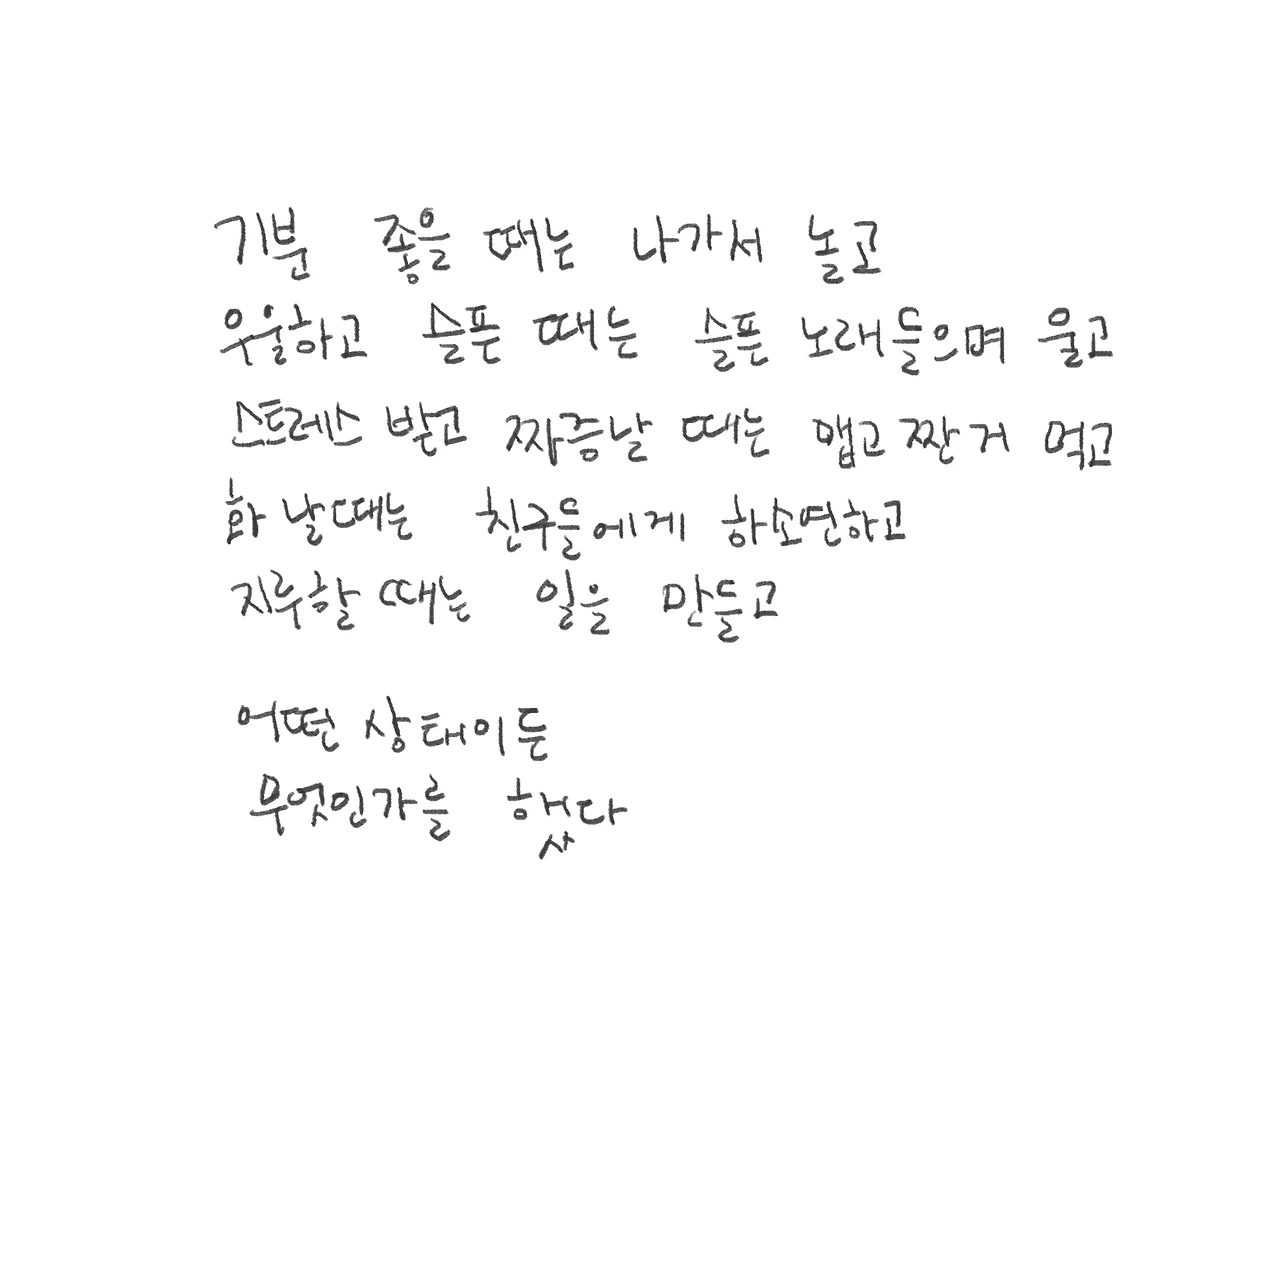 기분 좋을 때는 나가서 놀고
우울하고 슬픈 때는 슬픈 노래 들으며 울고
스트레스 받고 짜증날 때는 맵고 짠 거 먹고
화 날 때는 친구들에게 하소연하고
지루할 때는 일을 만들고
어떤 상태이든
무엇인가를 했다